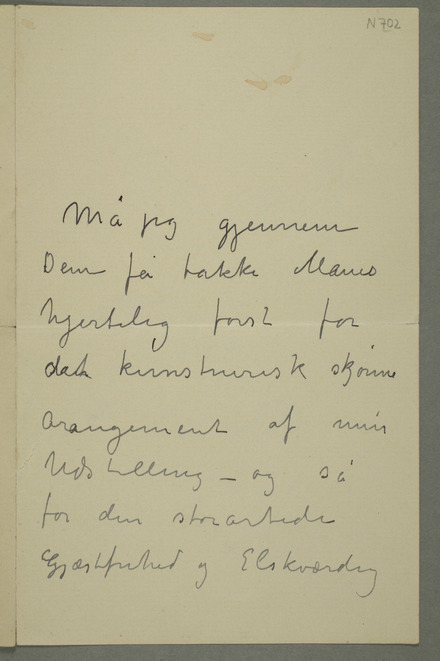 N 702
Må jeg gjennem
Dem få takke Manes
hjertelig først for
det kunstnerisk skjønne
arangement af min
Udstilling – og så
for den storartede
Gjæstfrihed og Elskværdig